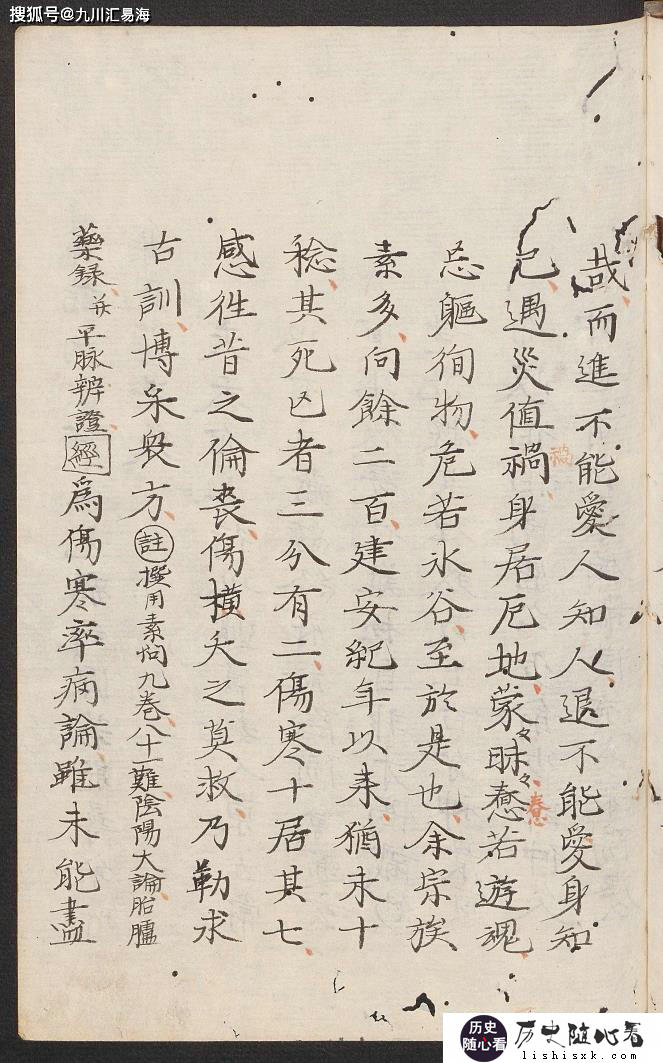 搜狐号@九川汇易海
哉而進不能愛人知人退不能愛身知
己遇災值禍身居厄地蒙々昧々惷若遊魂
禍
惷
忘軀徇物危若氷谷至於是也余宗族
素多向餘二百建安紀年以来猶未十
稔其死亡者三分有二傷寒十居其七
感徃昔之倫喪傷横夭之莫救乃勤求
古訓博采衆方註撰用素問九卷八十一難陰陽大論胎臚
藥錄并平脉辨證經爲傷寒卒病論雖未能盡
历史随心看
历史随心看
lishisxk.com